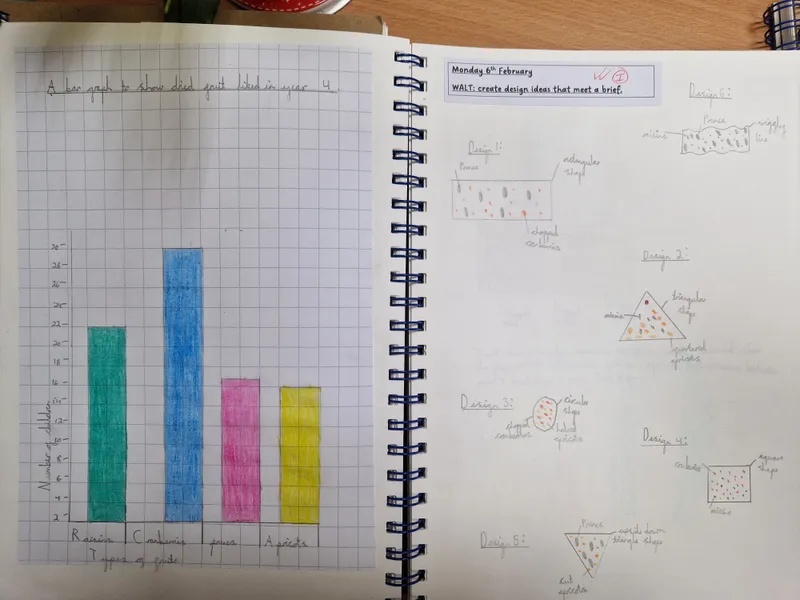 A bar graph to show dried fruit liked in year 4.
30
28
26
24
22
20
18
16
14
12
10
8
6
4
2
Number of children
Raisins
Cranberries
prunes
Apricots
Types of fruits
Monday 6th February
WALT: create design ideas that meet a brief.
W I
Design 1:
Prunes
rectangular
shape
chopped
cranberries
Design 6:
Prunes
wiggly
line
raisins
Design 2:
triangular
shape
raisins
quartered
apricots
Design 3:
circular
shape
chopped
cranberries
halved
apricots
Design 4:
square
shape
cranberries
raisins
Design 5:
Prunes
upside down
triangle shape
cut
apricots